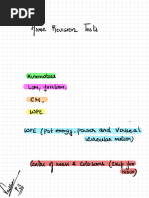 Home Revision Tests
Kinematics
LOM, friction,
CM,
WPE
WPE (Pot energy, power and Vertical
circular motion)
Centre of mass & Collisions (Except for